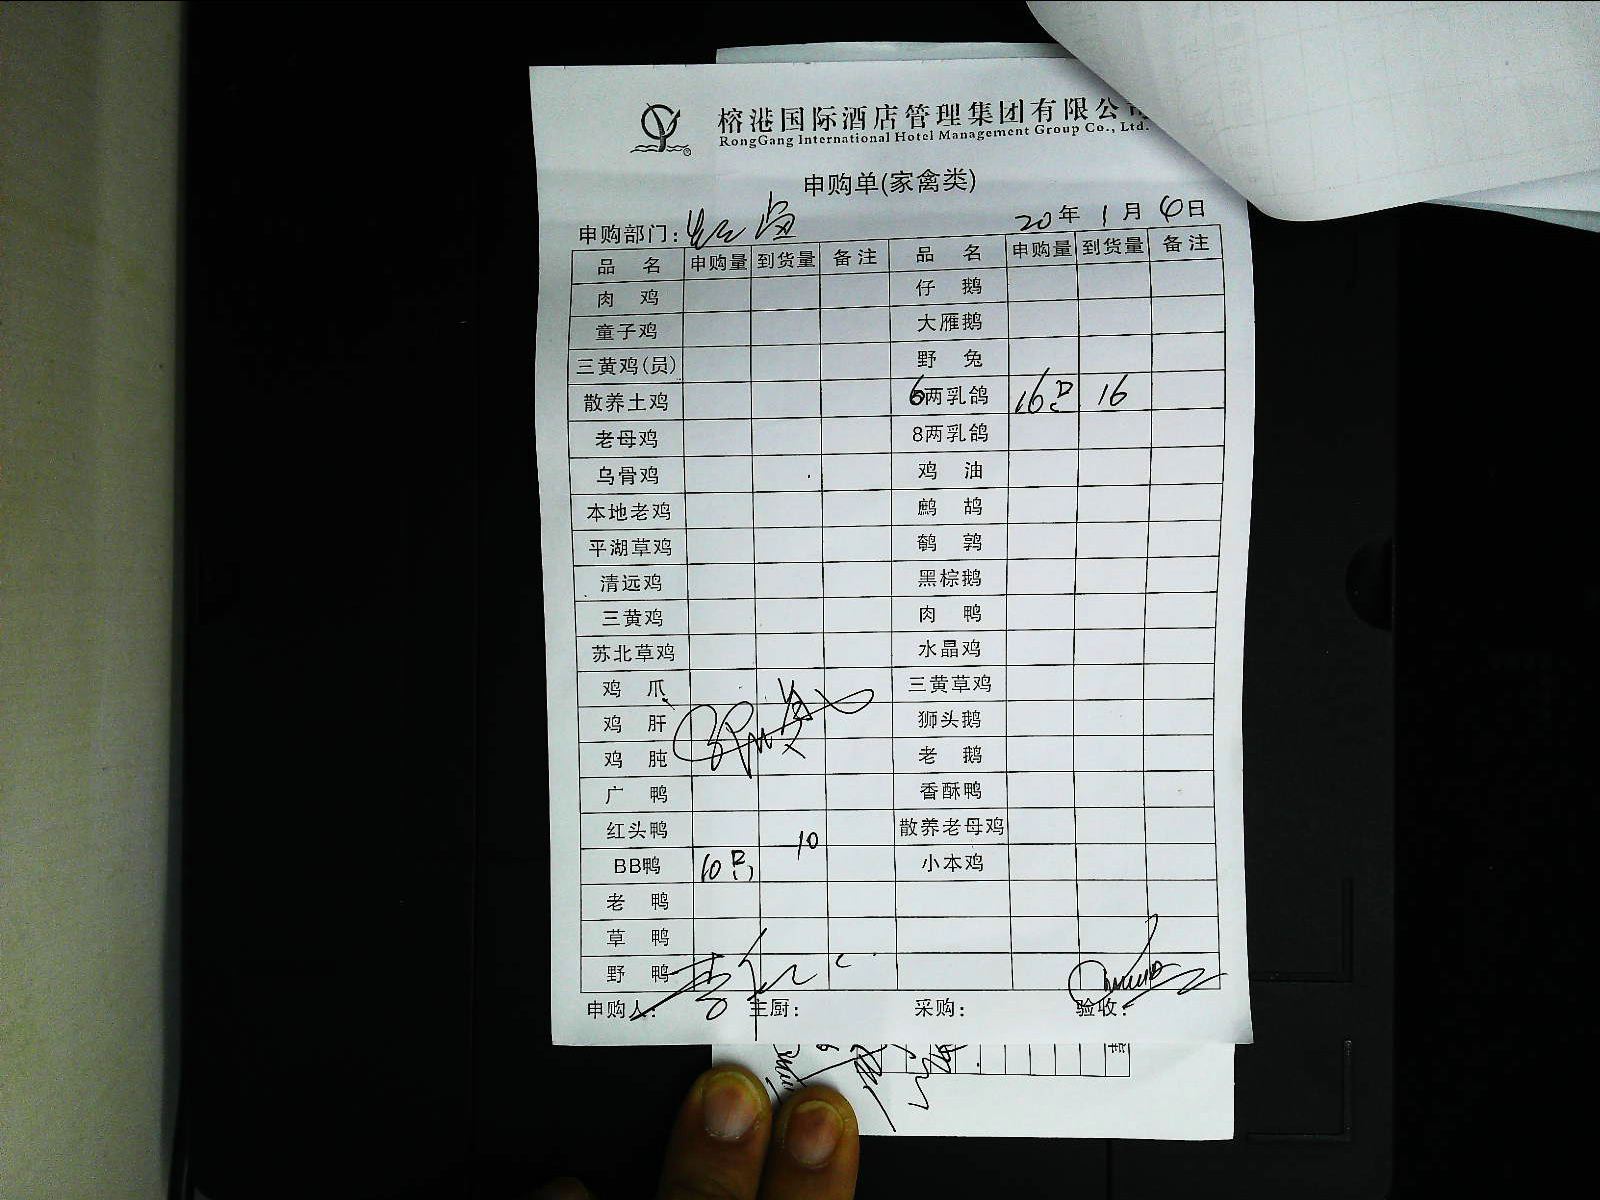 榕港国际酒店管理集团有限公司
RongGang International Hotel Management Group Co., Ltd.
申购单(家禽类)
申购部门： 20年 1月 6日
品名 申购量 到货量 备注 品名 申购量 到货量 备注
肉鸡 仔鹅
童子鸡 大雁鹅
三黄鸡(员) 野兔
散养土鸡 6两乳鸽 16只 16
老母鸡 8两乳鸽
乌骨鸡 鸡油
本地老鸡 鹧鸪
平湖草鸡 鹌鹑
清远鸡 黑棕鹅
三黄鸡 肉鸭
苏北草鸡 水晶鸡
鸡爪 三黄草鸡
鸡肝 狮头鹅
鸡肫 老鹅
广鸭 香酥鸭
红头鸭 10 散养老母鸡
BB鸭 10只 小本鸡
老鸭
草鸭
野鸭
申购人： 主厨： 采购： 验收：